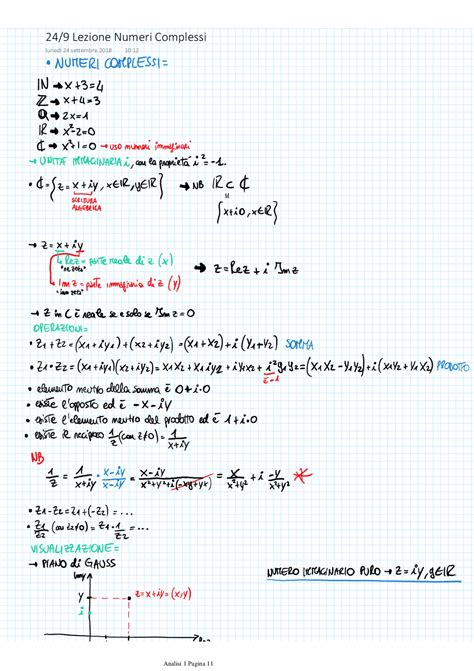 24/9 Lezione Numeri Complessi
lunedì 24 settembre 2018 10:12
• NUMERI COMPLESSI=
ℕ → x+3=4
ℤ → x+4=3
ℚ → 2x=1
ℝ → x²-2=0
ℂ → x²+1=0 → uso numeri immaginari
→ UNITÀ IMMAGINARIA i, con la proprietà i²=-1.
• ℂ={z=x+iy, x∈ℝ, y∈ℝ} → NB ℝ⊂ℂ
SCRITTURA
ALGEBRICA
{x+i0, x∈ℝ}
→ z=x+iy
Rez= parte reale di z (x)
→ z=Rez + i Imz
Imz= parte immaginaria di z (y)
→ z in ℂ è reale se e solo se Imz=0
OPERAZIONI=
• z₁+z₂=(x₁+iy₁)+(x₂+iy₂)=(x₁+x₂)+i(y₁+y₂) SOMMA
• z₁·z₂=(x₁+iy₁)(x₂+iy₂)=x₁x₂+x₁iy₂+iy₁x₂+i²y₁y₂=(x₁x₂-y₁y₂)+i(x₁y₂+y₁x₂) PRODOTTO
=-1
• elemento neutro della somma è 0+i·0
• esiste l'opposto ed è -x-iy
• esiste l'elemento neutro del prodotto ed è 1+i·0
• esiste il reciproco 1/z (con z≠0)=1/(x+iy)
NB
1/z = 1/(x+iy) · (x-iy)/(x-iy) = (x-iy)/(x²+y²+i(-xy+yx)) = x/(x²+y²) + i -y/(x²+y²)
• z₁-z₂=z₁+(-z₂)=...
• z₁/z₂ (con z₂≠0)=z₁·1/z₂=...
VISUALIZZAZIONE=
→ PIANO di GAUSS
NUMERO IMMAGINARIO PURO → z=iy, y∈ℝ
Imm
y
z=x+iy=(x,y)
i
Analisi 1 Pagina 11